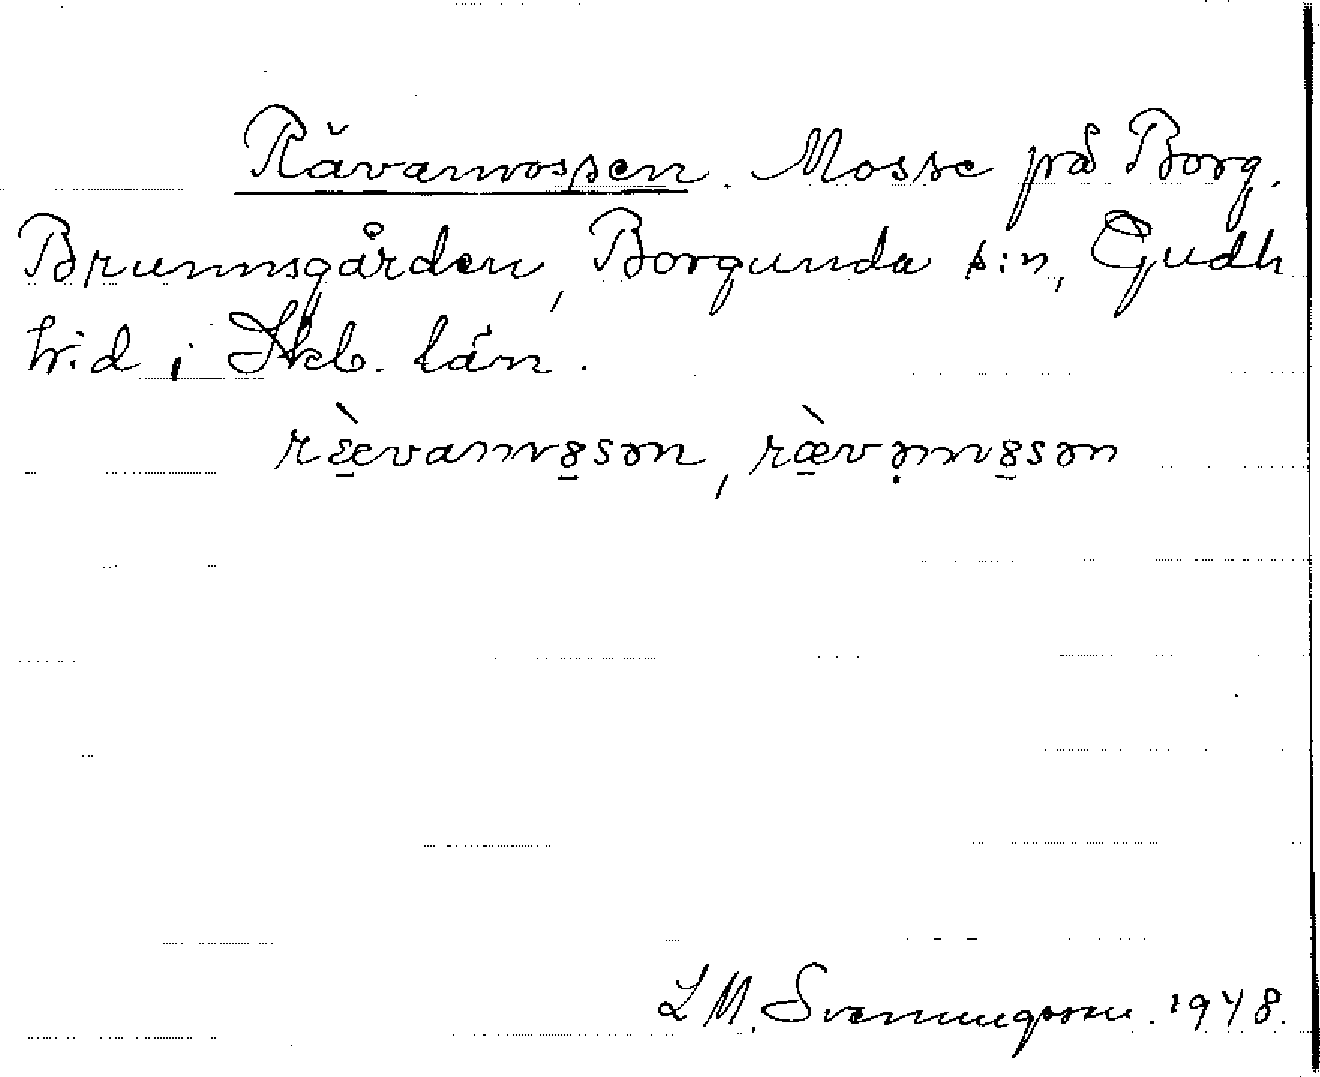 Rävamossen. Mosse på Borg.
Brunnsgården, Borgunda s:n, Gudh
h:d i Skb. län.
ræ̀vamɷ̱sən, ræ̀vəmɷ̱sən
L M. Svenningsson. 1948.